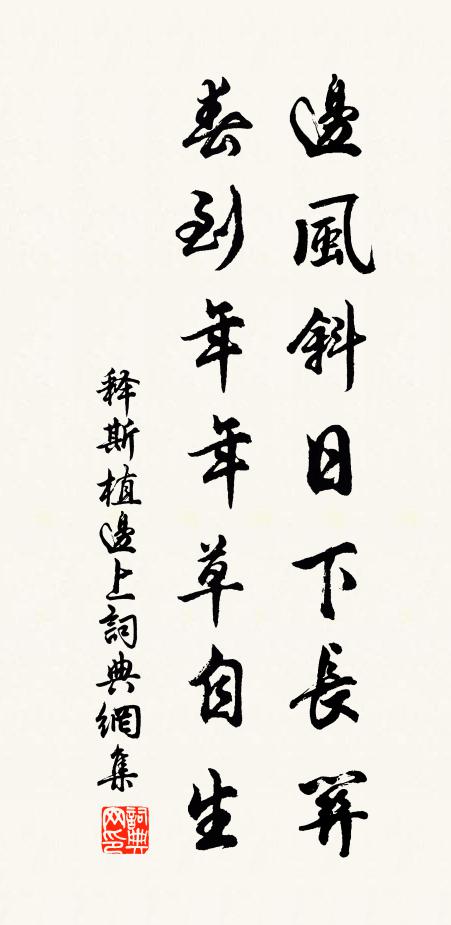 邊風斜日下長關
春到年年草自生
释斯植邊上詞典網集
詞典
网印